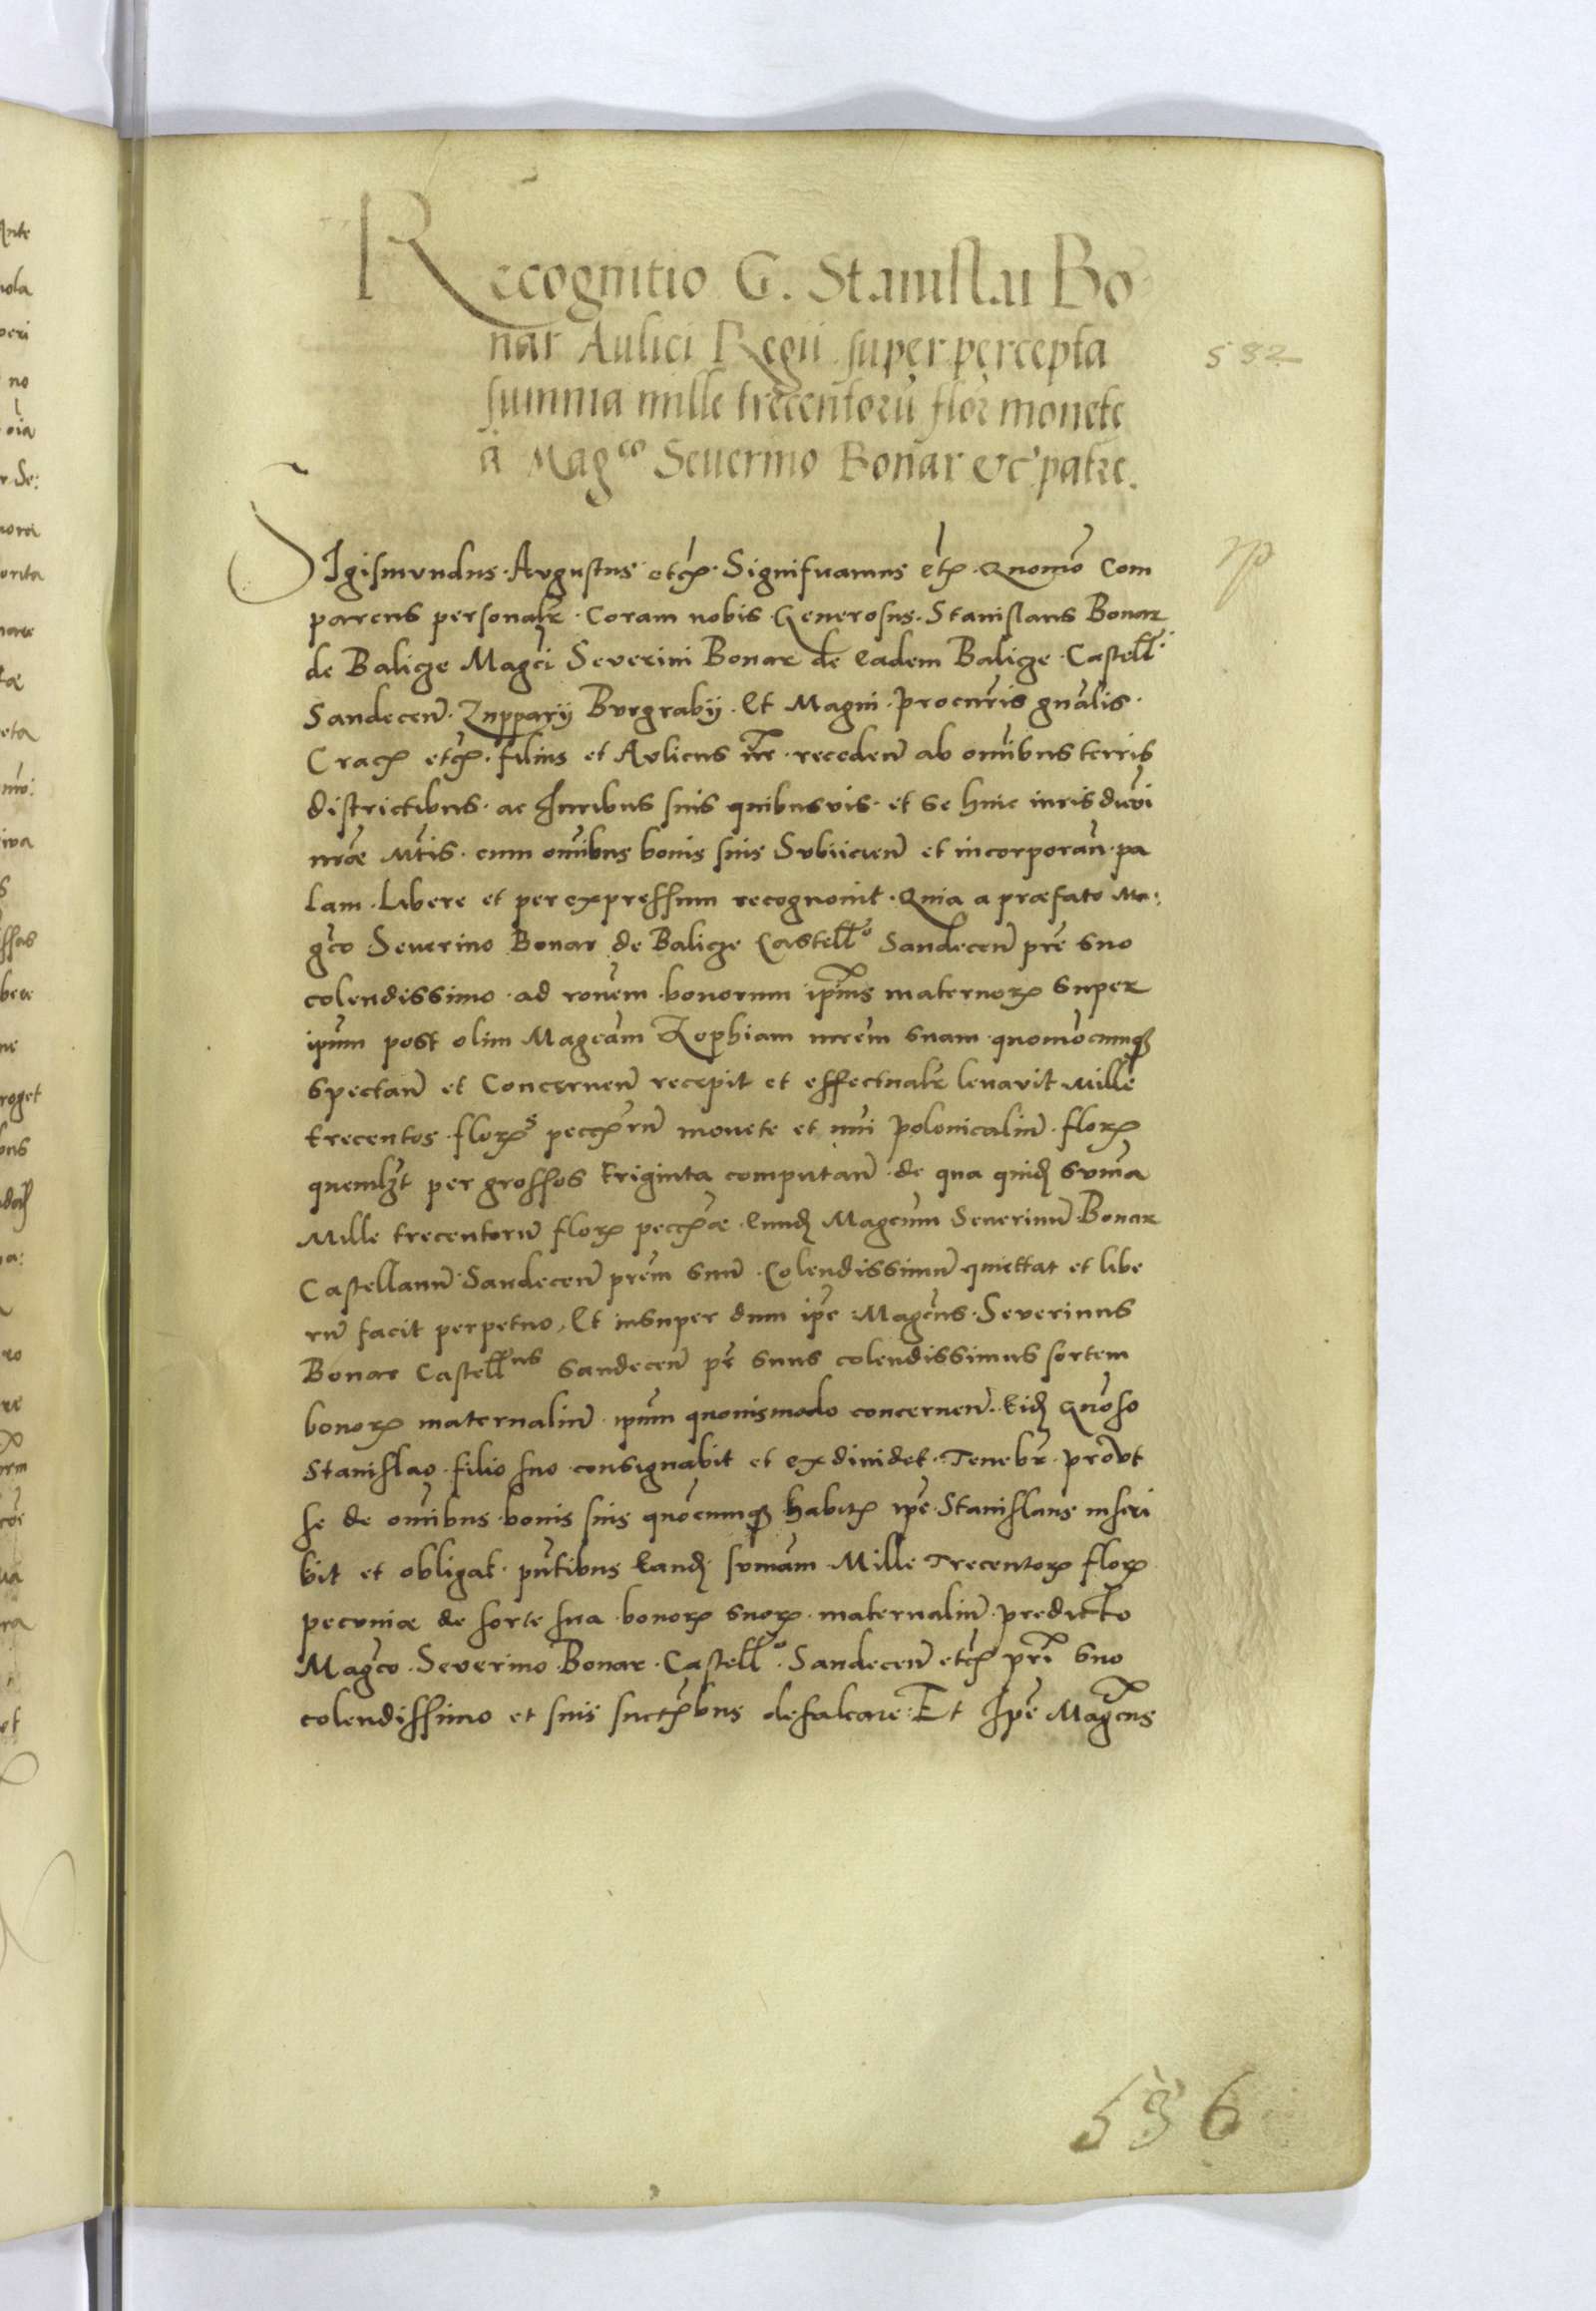 Recognitio G. Stanislai Bo
nar Aulici Regii super percepta
summa mille trecentorū flor̄ monete
a Magco Severino Bonar &c patre.
532
SIgismvndus Avgustus etcꝫ. Significamus etꝫ. Quomō Com
parens personalr̄ Coram nobis Generosus Stanislaus Bonar
de Balicze Magci Severini Bonar de eadem Balicze Castell̄i
Sandecen̄ Zupparij Burgrabij et Magni procur̄is gn̄alis
Cracꝫ etcꝫ. filius et Avlicus nr̄ receden̄ ab om̄ibus terris
districtibus ac Iuribus suis quibusvis et se huic iurisdic̄ni
nrǣ Mt̄is cum om̄ibus bonis suis Subiicien̄ et incorporan̄ pa
lam Libere et per expressum recognovit Quia a præfato Ma:
gc̄o Severino Bonar de Balicze Castell̄o Sandecen̄ prē suo
colendissimo ad ronēm bonorum ip̄ius maternorꝝ super
ipūm post olim Magcām Zophiam mrēm suam quomōcumqꝫ
spectan̄ et Concernen̄ recepit et effectualr̄ levavit Mille
trecentos florꝝs peccꝫrū monete et nūi polonicaliū florꝝ
quemlꝫt per grossos triginta computan̄ de qua quidꝫ summ̄a
Mille trecentorū florꝝ peccꝫæ eundꝫ Magcum Severinū Bonar
Castellanū Sandecen̄ prēm suū Colendissimū quittat et libe
rū facit perpetuo, Et insuper dum ipē Magcūs Severinus
Bonar Castell̄us Sandecen̄ pr̄ suus colendissimus sortem
bonorꝝ maternaliū ipūm quovismodo concernen̄ Eidꝫ Gn̄oso
Stanislao filio suo consignabit et exdividet Tenebr̄ provt
se de om̄ibus bonis suis quōcumqꝫ habitꝫ ipē Stanislaus inscri
bit et obligat pn̄tibus eandꝫ sumām Mille Trecentorꝝ florꝝ
pecvniæ de sorte sua bonorꝝ suorꝝ maternaliū predicto
Magc̄o Severino Bonar Castell̄o Sandecen̄ etcꝫ prī suo
colendissimo et suis suctꝫbus defalcare Et Ipē Magcūs
536